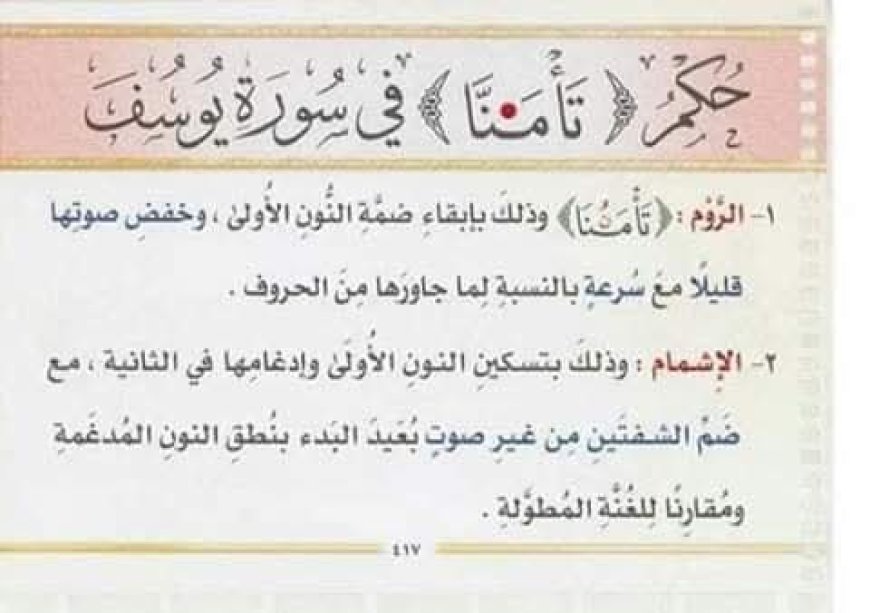 حُكْمُ ﴿ تَأْمَ۫نَّا ﴾ فِي سُورَةِ يُوسُفَ
١- الرَّوْم : ﴿ تَأْمَنُنَا ﴾ وذلكَ بإبقاءِ ضمَّةِ النُّونِ الأُولىٰ ، وخفضِ صوتِها
قليلًا معَ سُرعةٍ بالنسبةِ لِما جاورَها مِنَ الحروف .
٢- الإشمام : وذلكَ بتسكينِ النونِ الأُولَىٰ وإدغامِها في الثانية ، مع
ضَمِّ الشفتَينِ مِن غيرِ صوتٍ بُعَيدَ البَدء بنُطقِ النونِ المُدغَمةِ
ومُقارِنًا لِلغُنَّةِ المُطوَّلةِ .
٤١٧